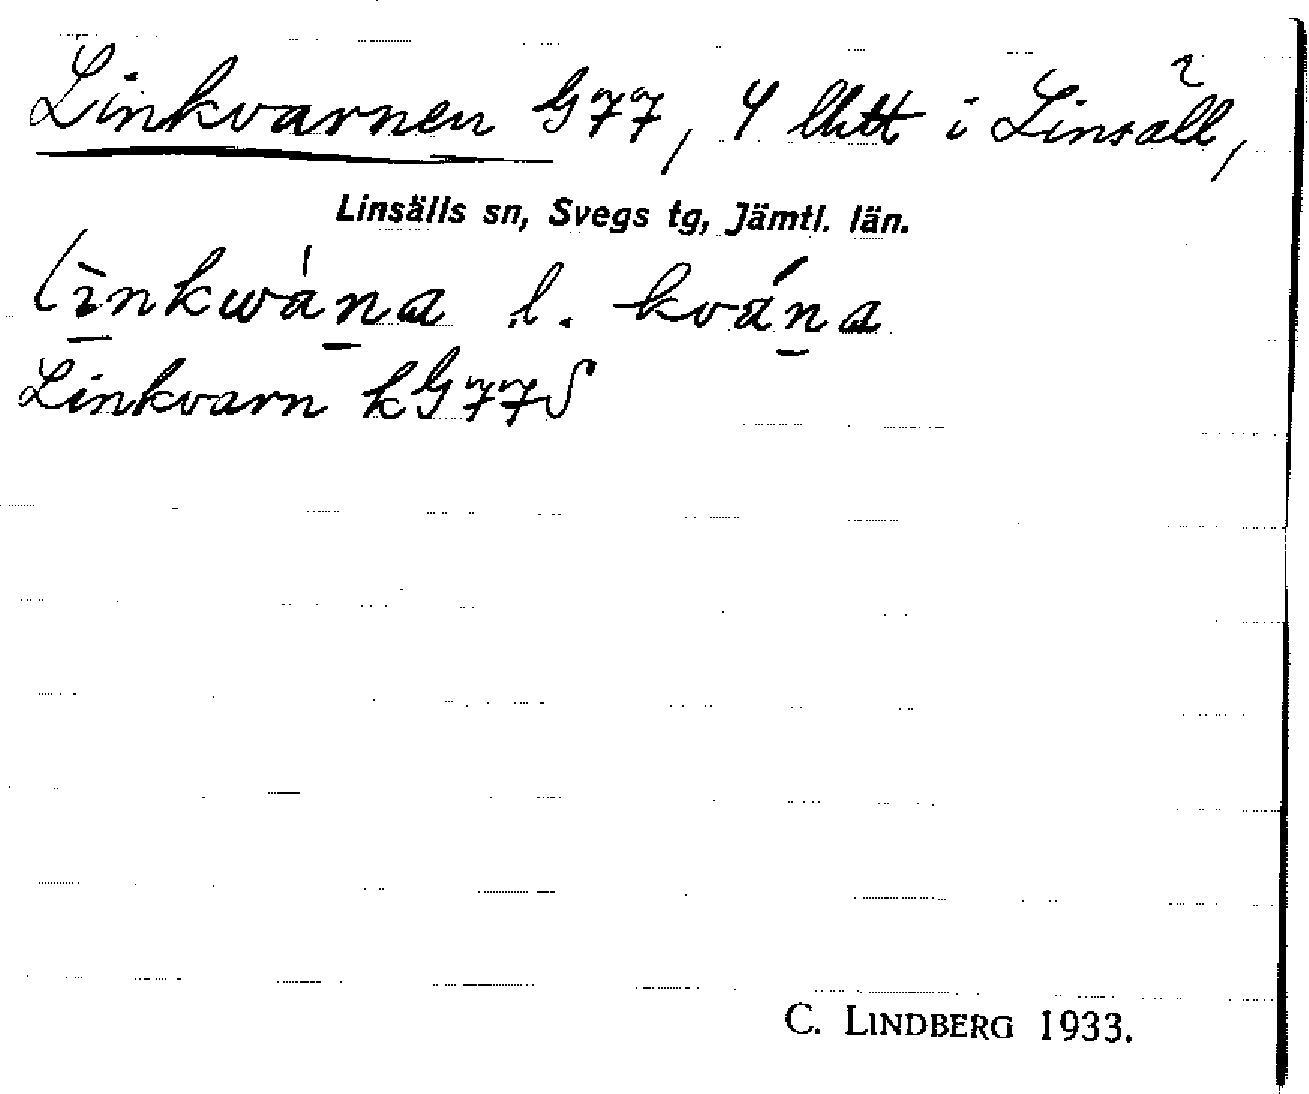 Linkvarnen G77, 4 i Linsäll,
Linsälls sn, Svegs tg, Jämtl. län.
lìnkwàna l. kvána
Linkvarn kG77S
C. LINDBERG 1933.